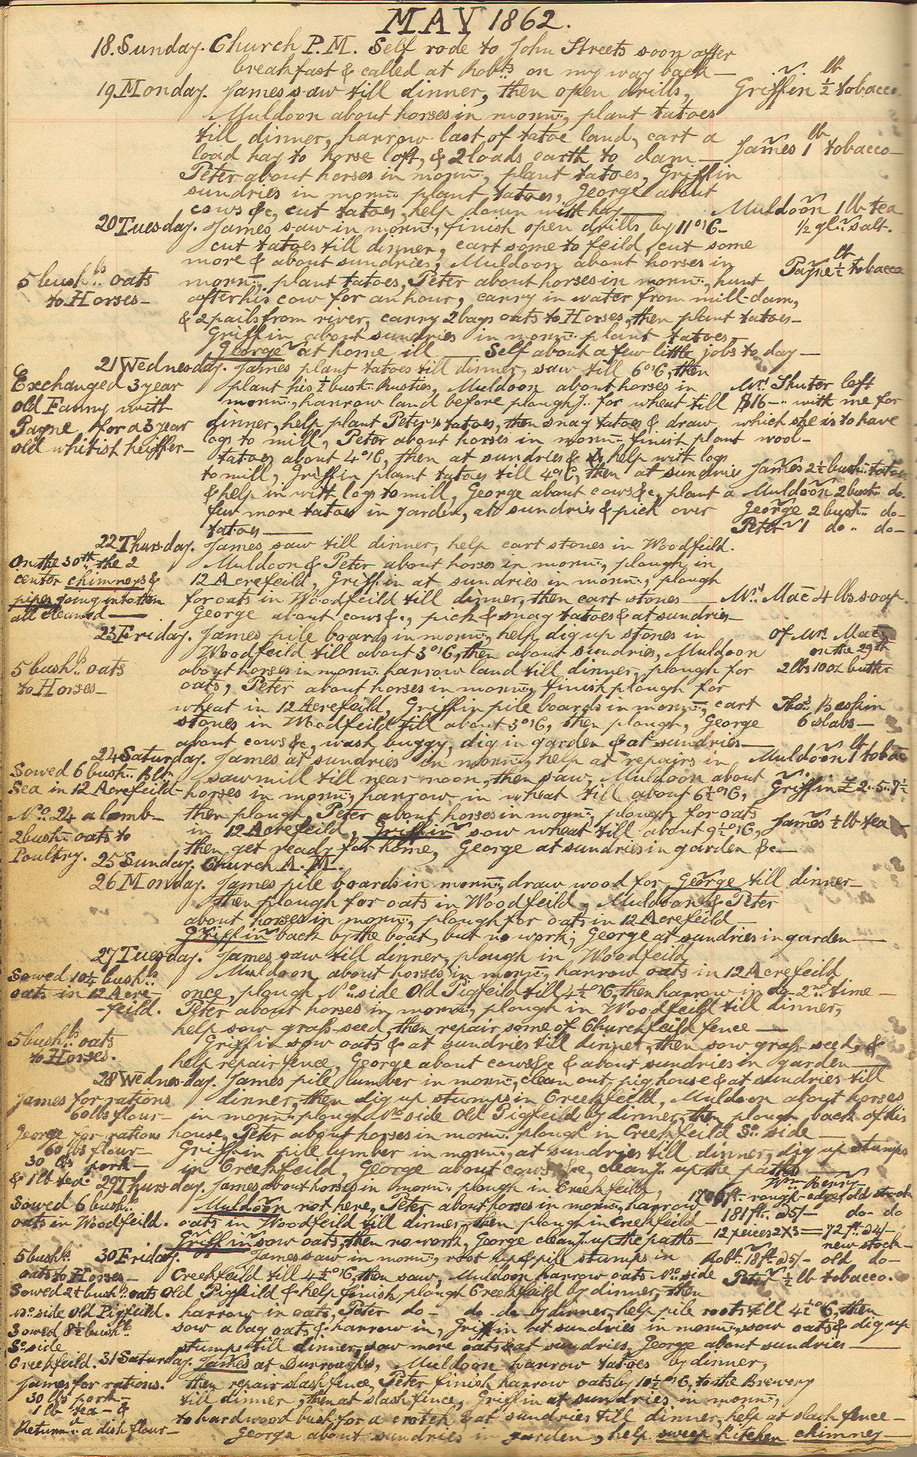 MAY 1862.
18. Sunday. Church P.M. Self rode to John Streets soon after
breakfast & called at Robts. on my way back —
19 Monday. James saw till dinner, then open drills, Griffin ½ lb tobacco
Muldoon about horses in mornng, plant tatoes
till dinner, harrow last of tatoe land, cart a
load hay to horse loft, & 2 loads earth to dam — James 1 lb tobacco —
Peter about horses in mornng, plant tatoes, Griffin
sundries in mornng plant tatoes, George about
cows &c, cut tatoes, help down with hay — Muldoon 1 lb tea
20 Tuesday. James saw in mornng, finish open drills by 11 o'C — ½ gl. salt.
cut tatoes till dinner, cart some to feild, cut some
more & about sundries, Muldoon about horses in Payne ½ lb tobacco
5 bushls oats
to Horses —
mornng. plant tatoes, Peter about horses in mornng, hunt
after his cow for an hour, carry in water from mill-dam,
& 2 pails from river, carry 2 bags oats to Horses, then plant tatoes —
Griffin about sundries in mornng plant tatoes
George at home ill Self about a few little jobs to day —
21 Wednesday. James plant tatoes till dinner, saw till 6 o'C, then
Exchanged 3 year
old Fanny with
Payne, for a 3 year
old whitish heiffer —
plant his ½ bush. Rusties, Muldoon about horses in Mr. Shuter left
mornng, harrow land before plough'g. for wheat till $16 — with me for
dinner, help plant Peter's tatoes, then snag tatoes & draw which she is to have
logs to mill, Peter about horses in mornng finish plant wool —
tatoes about 4 o'C, then at sundries & help with log
to mill, Griffin plant tatoes till 4 o'C, then at sundries James 2½ bush. tatoes
& help in with logs to mill, George about cows &c, plant a Muldoon 2 bush. do
few more tatoes in garden, at sundries & pick over George 2 bush. do —
tatoes — Peter 1 do. do —
22 Thursday. James saw till dinner, help cart stones in Woodfeild.
On the 30th. the 2
center chimneys &
pipes going into them
all cleaned —
Muldoon & Peter about horses in mornng, plough in
12 Acrefeild, Griffin at sundries in mornng, plough
for oats in Woodfeild till dinner, then cart stones — Mrs. Mac 4 lbs soap.
George about cows &c, pick & snag tatoes & at sundries —
23 Friday. James pile boards in mornng, help dig up stones in Of Mrs. Mac
Woodfeild till about 3 o'C, then about sundries, Muldoon on the 29th
5 bushls. oats
to Horses —
about horses in mornng. harrow land till dinner, plough for 2 lbs 10 oz butter
oats, Peter about horses in mornng, finish plough for
wheat in 12 Acrefeild, Griffin pile boards in mornng, cart Thos. Beskin
stones in Woodfeild till about 3 o'C, then plough, George 6 slabs —
about cows &c, wash buggy, dig in garden & at sundries —
24 Saturday. James at sundries in mornng, help at repairs in Muldoon 1 lb tobac
Sowed 6 bush.
Sea in 12 Acrefeild
sawmill till near noon, then saw, Muldoon about
horses in mornng, harrow in wheat till about 6½ o'C, Griffin £2.5.7½
No. 24 a lamb —
2 bush. oats to
Poultry.
then plough, Peter about horses in mornng, plough for oats
in 12 Acrefeild, Griffin sow wheat till about 9½ o'C, James ½ lb tea —
then get ready for home, George at sundries in garden &c —
25 Sunday. Church A.M.
26 Monday. James pile boards in mornng, draw wood for George till dinner —
then plough for oats in Woodfeild, Muldoon & Peter
about horses in mornng, plough for oats in 12 Acrefeild —
Griffin back by the boat, but no work, George at sundries in garden —
27 Tuesday. James saw till dinner, plough in Woodfeild
Muldoon about horses in mornng, harrow oats in 12 Acrefeild
Sowed 10½ bushls.
oats in 12 Acre
-feild.
once, plough No. side Old Pigfeild till 4½ o'C, then harrow in do 2nd time —
Peter about horses in mornng, plough in Woodfeild till dinner,
help sow grass seed, then repair some of Churchfeild fence —
5 bushls. oats
to Horses.
Griffin sow oats & at sundries till dinner, then sow grass seed, &
help repair fence, George about cows &c & about sundries in garden —
28 Wednesday. James pile lumber in mornng, clean out pighouse & at sundries till
James for rations
60 lbs flour —
dinner, then dig up stumps in Creekfeild, Muldoon about horses
in mornng plough No. side Old Pigfeild by dinner, then plough back of his
George for rations
60 lbs flour —
30 lbs pork —
& 1 lb tea —
house, Peter about horses in mornng. plough in Creekfeild So. side —
Griffin pile lumber in mornng, at sundries till dinner, dig up stumps
in Creekfeild, George about cows &c, cleang. up the paths —
29 Thursday. James about horses in mornng plough in Creekfeild, Wm. Berry —
Sowed 6 bushls.
oats in Woodfeild.
Muldoon not here, Peter about horses in mornng, harrow 1700 ft. rough-edged old stock
oats in Woodfeild till dinner, then plough in Creekfeild — 181 ft. 25/- do — do
Griffin sow oats, then no work, George cleang. up the paths — 12 pieces 2x3 = 72 ft. 24/-
new stock —
5 bushls.
oats to Horses —
30 Friday. James saw in mornng, root up & pile stumps in Robt. 18 ft. 25/- old do —
Creekfeild till 4½ o'C, then saw, Muldoon harrow oats No. side Peter ½ lb tobacco.
Sowed 2½ bush. oats
No. side Old Pigfeild.
Old Pigfeild & help finish plough Creekfeild by dinner, then
harrow in oats, Peter do — do. do by dinner, help pile roots till 4½ o'C, then
Sowed 8½ bushls.
So. side
Creekfeild.
sow a bag oats & harrow in, Griffin at sundries in mornng, sow oats & dig up
stumps till dinner, sow more oats & at sundries, George about sundries —
31 Saturday. James at Burroughs, Muldoon harrow tatoes by dinner,
James for rations.
30 lbs pork —
1 lb tea — &
Return a dish flour —
then repair slash fence, Peter finish harrow oats by 10½ o'C, to the Brewery
till dinner, then at slash fence, Griffin at sundries in mornng,
to hardwood bush, for a crotch & at sundries till dinner, help at slash fence —
George about sundries in garden, help sweep kitchen chimney —